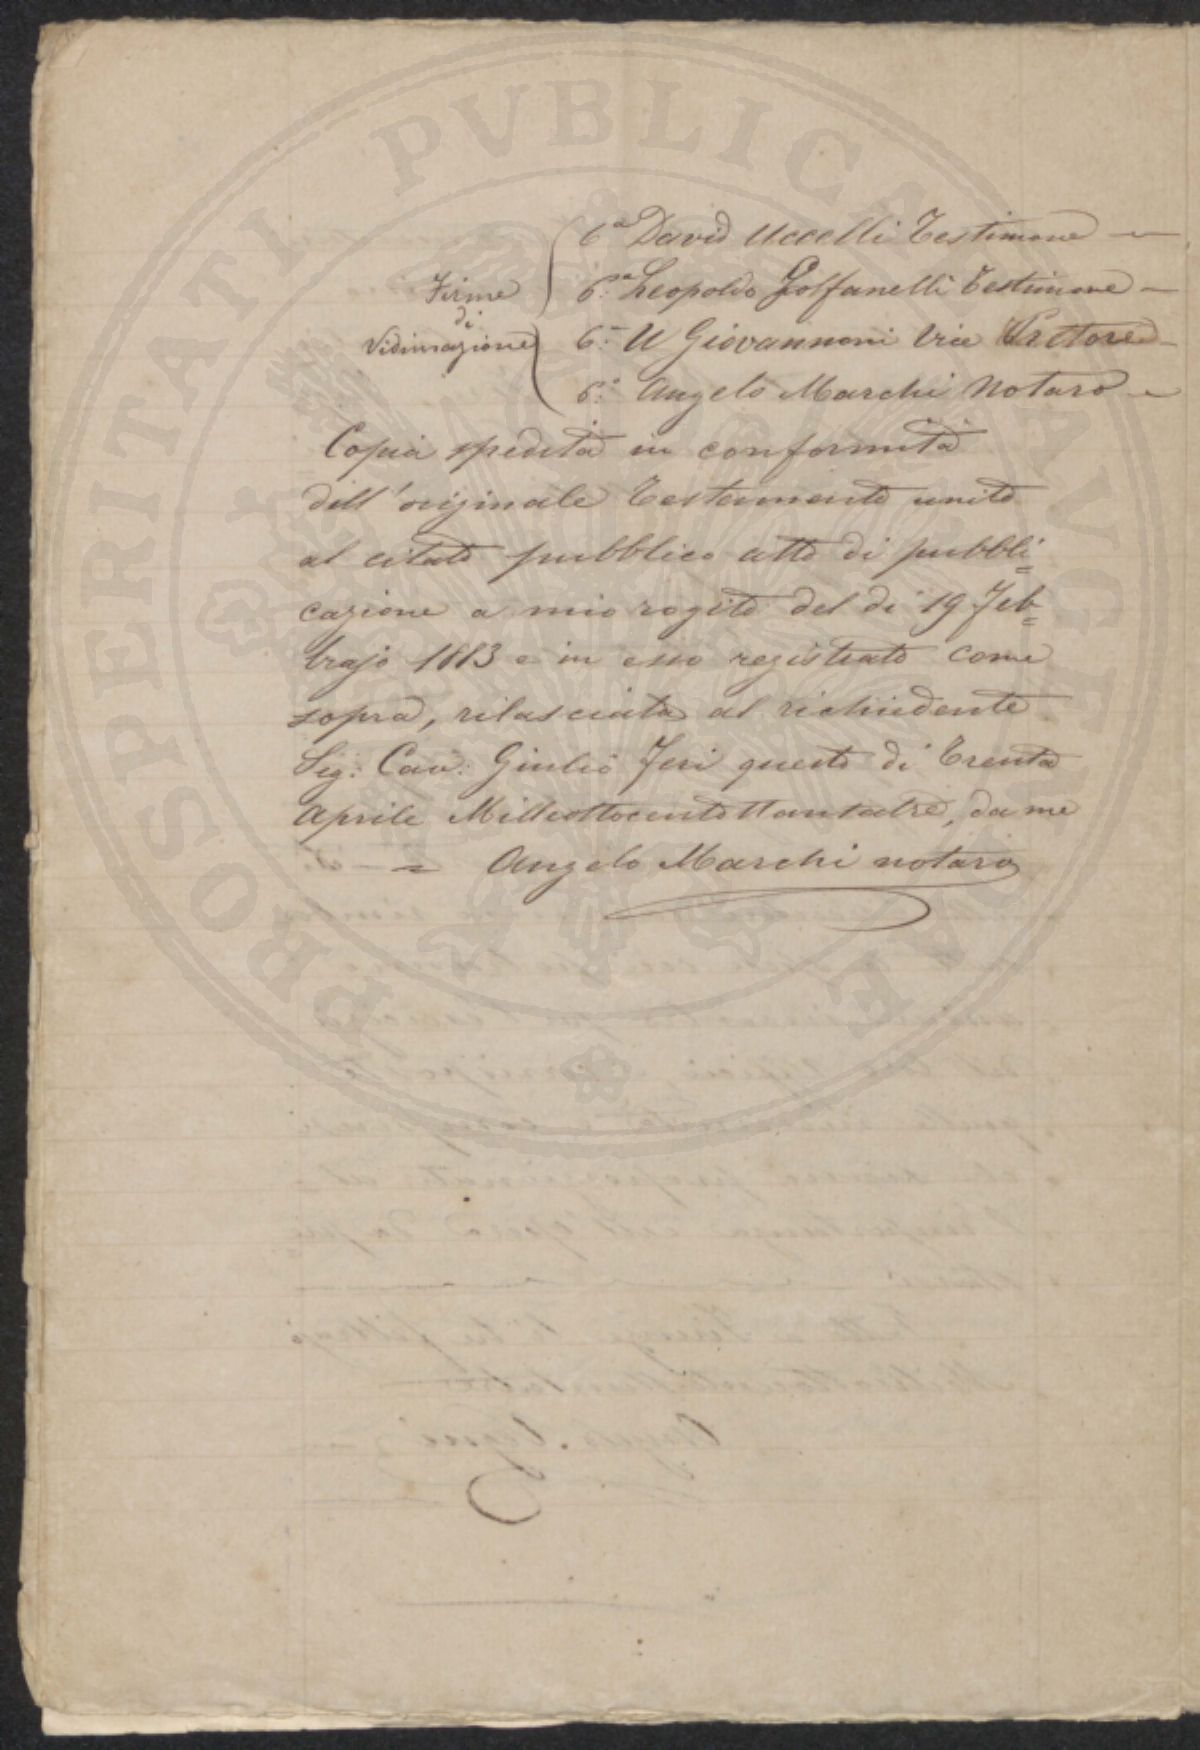 PROSPERITATI PVBLICAE AVGENDAE
6.ª David Uccelli Testimone —
6.ª Leopoldo Zolfanelli Testimone —
Firme
di
Vidimazione
6.ª U Giovannoni Vice Pretore —
6.ª Angelo Marchi Notaro —
Copia spedita in conformità
dell'originale Testamento unito
al citato pubblico atto di pubbli=
cazione a mio rogito del dì 19 Feb=
brajo 1883 e in esso registrato come
sopra, rilasciata al richiedente
Sig: Cav: Giulio Feri questo dì Trenta
Aprile Milleottocentottantatre, da me
= Angelo Marchi notaro